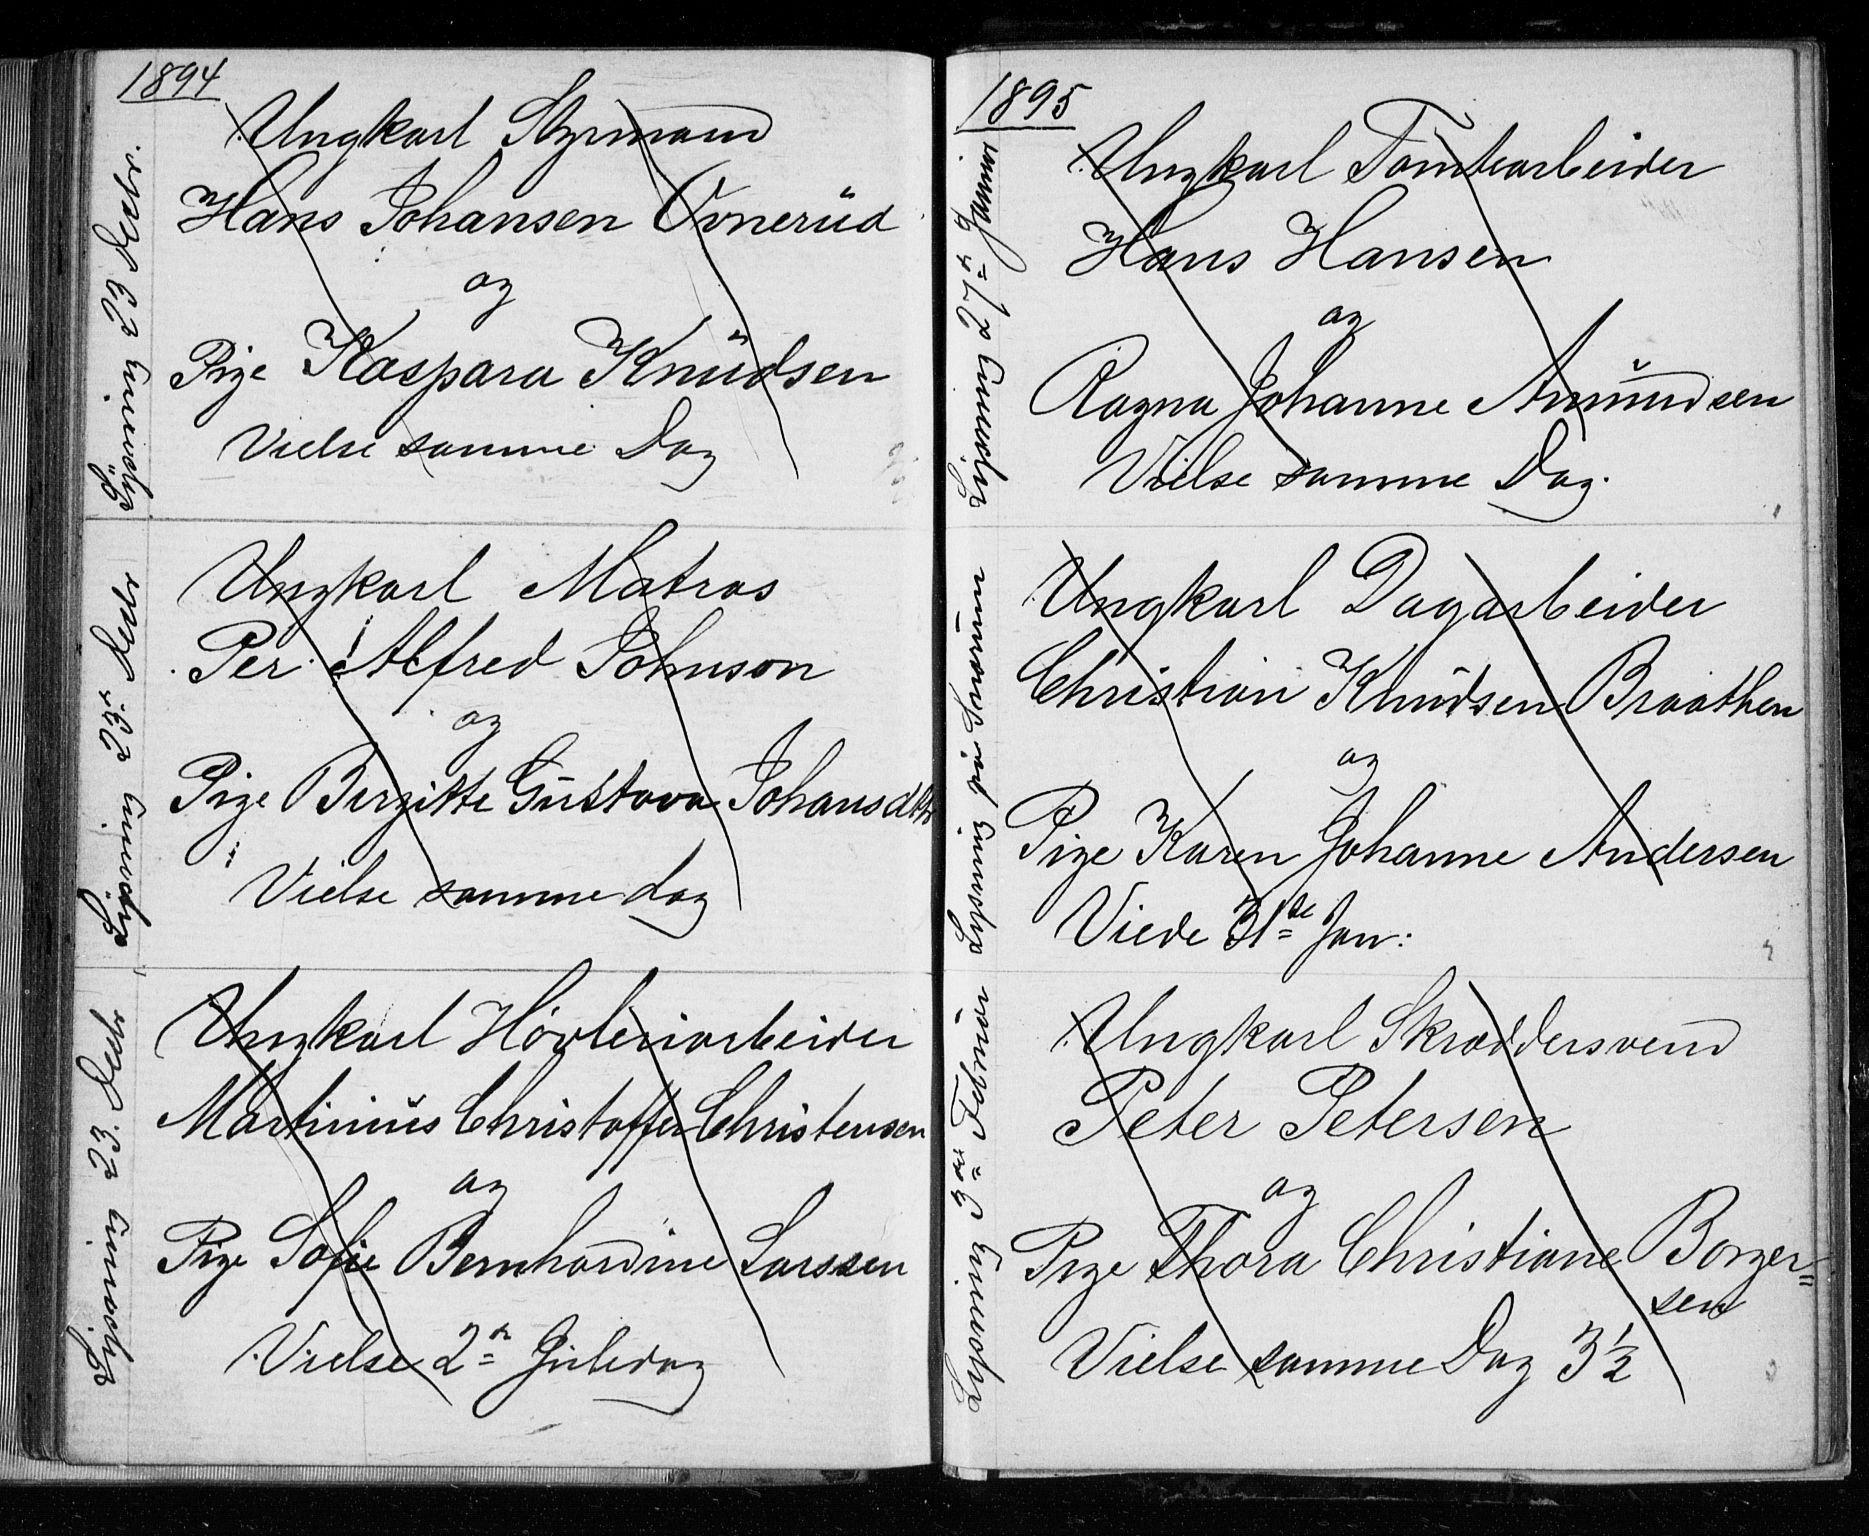 1894
Lysning 23 Decbr.
Ungkarl Styrmand
Hans Johansen Ovnerud
og
Pige Kaspara Knudsen
Vielse samme Dag
Lysning 23de Decbr
Ungkarl Matros
Per Alfred Johnson
og
Pige Birgitte Gustava Johansdttr
Vielse samme dag
Lysning 23. Decbr
Ungkarl Høvleriarbeider
Martinius Christoffer Christensen
og
Pige Sofie Bernhardine Larssen
Vielse 2den Juledag
1895
Lysning 27de Januar
Ungkarl Tomtearbeider
Hans Hansen
og
Ragna Johanne Amundsen
Vielse samme Dag.
Lysning paa Snarum
Ungkarl Dagarbeider
Christian Knudsen Braathen
og
Pige Karen Johanne Andersen
Viede 31te Jan:
Lysning 3die Februar
Ungkarl Skræddersvend
Peter Petersen
og
Pige Thora Christiane Borger=
sen
Vielse samme Dag 3½